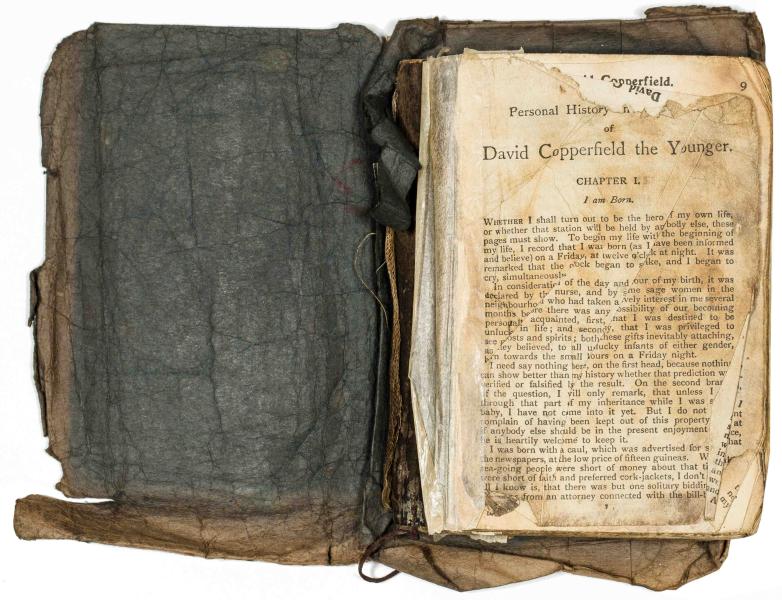 Copperfield.
David
9
Personal History
of
David Copperfield the Younger.
CHAPTER I.
I am Born.
WHETHER I shall turn out to be the hero of my own life,
or whether that station will be held by anybody else, these
pages must show. To begin my life with the beginning of
my life, I record that I was born (as I have been informed
and believe) on a Friday, at twelve o'clock at night. It was
remarked that the clock began to strike, and I began to
cry, simultaneously
In consideration of the day and our of my birth, it was
declared by the nurse, and by some sage women in the
neighbourhood who had taken a vely interest in me several
months before there was any ossibility of our becoming
personally acquainted, first, hat I was destined to be
unlucky in life; and secondly, that I was privileged to
see osts and spirits; both hese gifts inevitably attaching,
as hey believed, to all unlucky infants of either gender,
rn towards the small hours on a Friday night.
I need say nothing here, on the first head, because nothing
can show better than my history whether that prediction w
verified or falsified by the result. On the second bran
of the question, I will only remark, that unless I
through that part of my inheritance while I was s
baby, I have not come into it yet. But I do not
complain of having been kept out of this property
if anybody else should be in the present enjoyment
he is heartily welcome to keep it.
I was born with a caul, which was advertised for s
the newspapers, at the low price of fifteen guineas. W
sea-going people were short of money about that ti
were short of faith and preferred cork-jackets, I don't
all I know is, that there was but one solitary biddin
from an attorney connected with the bill-